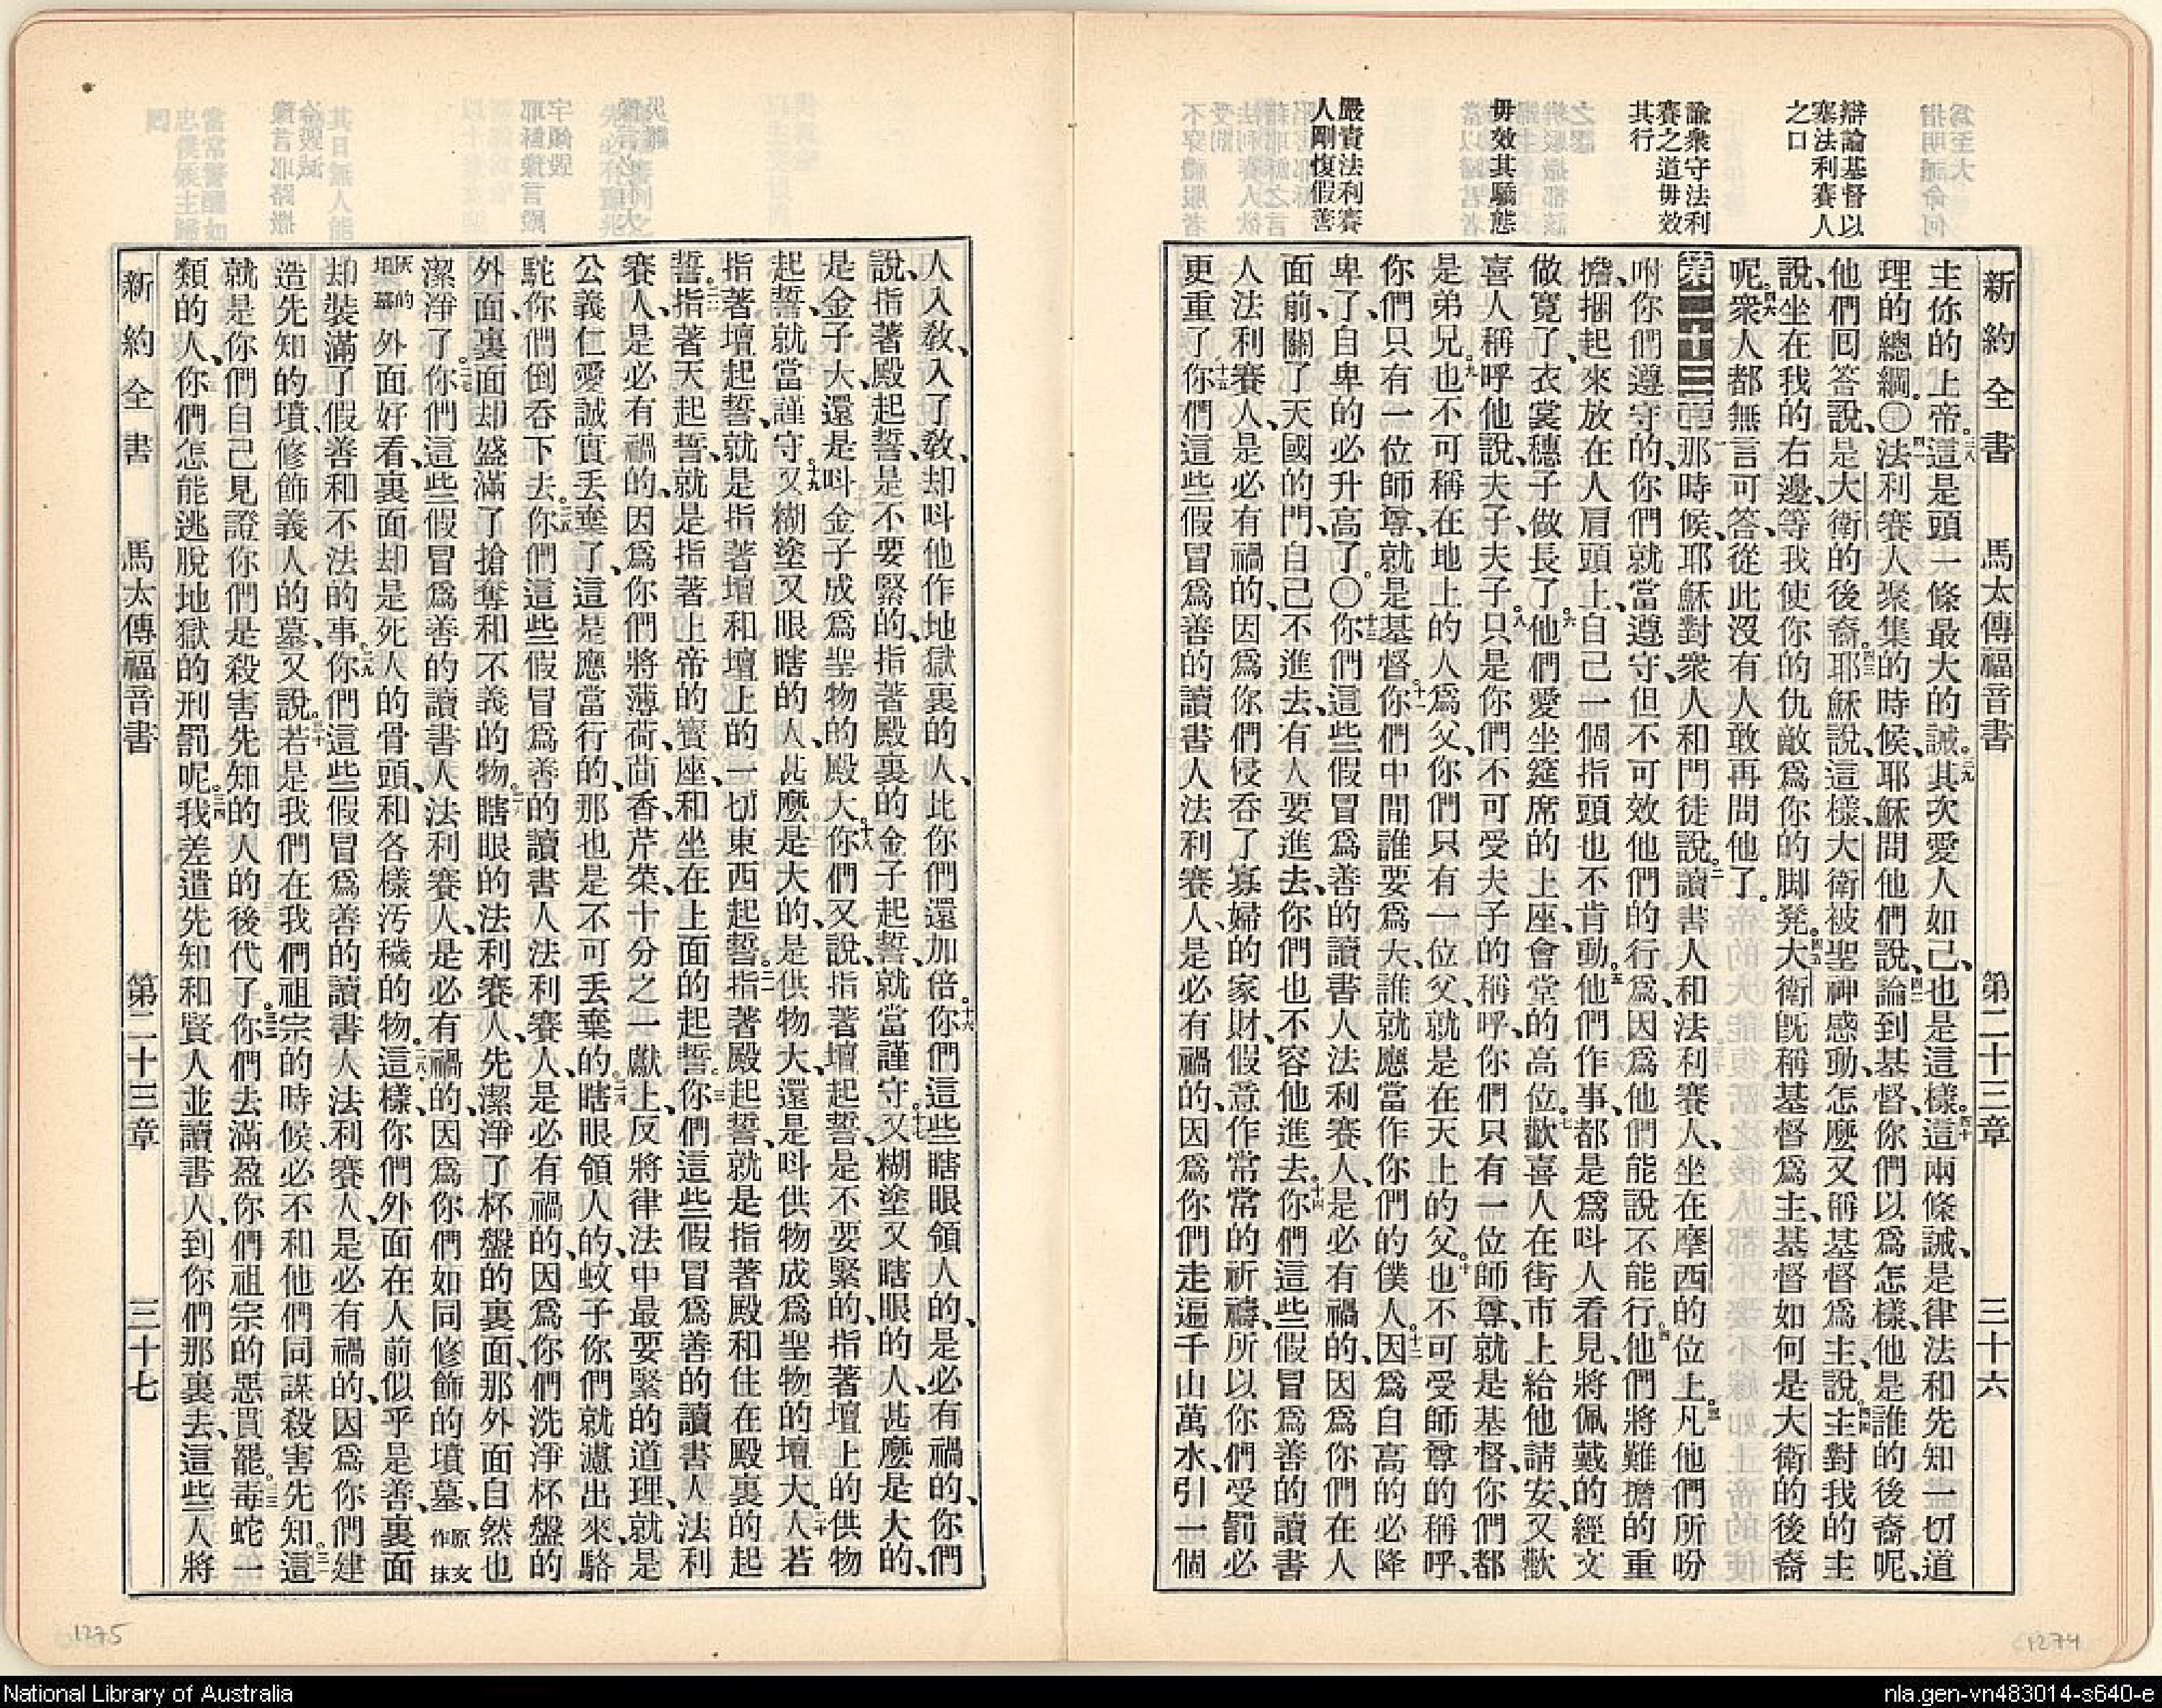 新約全書　馬太傳福音書　第二十三章　三十六
辯論基督以
塞法利賽人
之口
諭衆守法利
賽之道毋效
其行
毋效其驕態
嚴責法利賽
人剛愎假善
主你的上帝。三八這是頭一條最大的誡。三九其次愛人如己、也是這樣。四十這兩條誡、是律法和先知一切道
理的總綱。〇四一法利賽人聚集的時候、耶穌問他們說、四二論到基督、你們以爲怎樣、他是誰的後裔呢、
他們回答說、是大衛的後裔。四三耶穌說、這樣、大衛被聖神感動、怎麼又稱基督爲主、說、四四主對我的主
說、坐在我的右邊、等我使你的仇敵爲你的脚凳。四五大衛旣稱基督爲主、基督如何是大衛的後裔
呢。四六衆人都無言可答、從此沒有人敢再問他了。
第二十三章一那時候、耶穌對衆人和門徒說。二讀書人和法利賽人、坐在摩西的位上。三凡他們所吩
咐你們遵守的、你們就當遵守、但不可效他們的行爲、因爲他們能說不能行。四他們將難擔的重
擔、捆起來放在人肩頭上、自己一個指頭也不肯動。五他們作事、都是爲呌人看見、將佩戴的經文
做寬了、衣裳穗子做長了。六他們愛坐筵席的上座、會堂的高位。七歡喜人在街市上給他請安、又歡
喜人稱呼他說、夫子、夫子。八只是你們不可受夫子的稱呼、你們只有一位師尊、就是基督、你們都
是弟兄。九也不可稱在地上的人爲父、你們只有一位父、就是在天上的父。十也不可受師尊的稱呼、
你們只有一位師尊、就是基督。十一你們中間誰要爲大、誰就應當作你們的僕人。十二因爲自高的必降
卑了、自卑的必升高了。〇十三你們這些假冒爲善的讀書人法利賽人、是必有禍的、因爲你們在人
面前、關了天國的門、自己不進去、有人要進去、你們也不容他進去。十四你們這些假冒爲善的讀書
人法利賽人、是必有禍的、因爲你們侵吞了寡婦的家財、假意作常常的祈禱、所以你們受罰必
更重了。十五你們這些假冒爲善的讀書人法利賽人、是必有禍的、因爲你們走遍千山萬水、引一個
1274
人入敎、入了敎、却呌他作地獄裏的人、比你們還加倍。十六你們這些瞎眼領人的、是必有禍的、你們
說、指著殿起誓、是不要緊的、指著殿裏的金子起誓、就當謹守。十七又糊塗又瞎眼的人、甚麼是大的、
是金子大、還是呌金子成爲聖物的殿大。十八你們又說、指著壇起誓、是不要緊的、指著壇上的供物
起誓、就當謹守。十九又糊塗又眼瞎的人、甚麼是大的、是供物大、還是呌供物成爲聖物的壇大。二十人若
指著壇起誓、就是指著壇和壇上的一切東西起誓。二一指著殿起誓、就是指著殿和住在殿裏的起
誓。二二指著天起誓、就是指著上帝的寶座、和坐在上面的起誓。二三你們這些假冒爲善的讀書人法利
賽人、是必有禍的、因爲你們將薄荷、茴香、芹菜、十分之一獻上、反將律法中最要緊的道理、就是
公義仁愛誠實丢棄了、這是應當行的、那也是不可丢棄的。二四瞎眼領人的、蚊子你們就濾出來、駱
駝你們倒吞下去。二五你們這些假冒爲善的讀書人法利賽人、是必有禍的、因爲你們洗淨杯盤的
外面、裏面却盛滿了搶奪和不義的物。二六瞎眼的法利賽人、先潔淨了杯盤的裏面、那外面自然也
潔淨了。二七你們這些假冒爲善的讀書人法利賽人、是必有禍的、因爲你們如同修飾的墳墓、原文作抹
灰的墳墓外面好看、裏面却是死人的骨頭、和各樣汚穢的物。二八這樣、你們外面在人前似乎是善、裏面
却裝滿了假善和不法的事。二九你們這些假冒爲善的讀書人法利賽人、是必有禍的、因爲你們建
造先知的墳、修飾義人的墓、又說。三十若是我們在我們祖宗的時候、必不和他們同謀殺害先知。三一這
就是你們自己見證你們是殺害先知的人的後代了。三二你們去滿盈你們祖宗的惡貫罷。三三毒蛇一
類的人、你們怎能逃脫地獄的刑罰呢。三四我差遣先知和賢人並讀書人、到你們那裏去、這些人將
新約全書　馬太傳福音書　第二十三章　三十七
1275
National Library of Australia
nla.gen-vn483014-s640-e